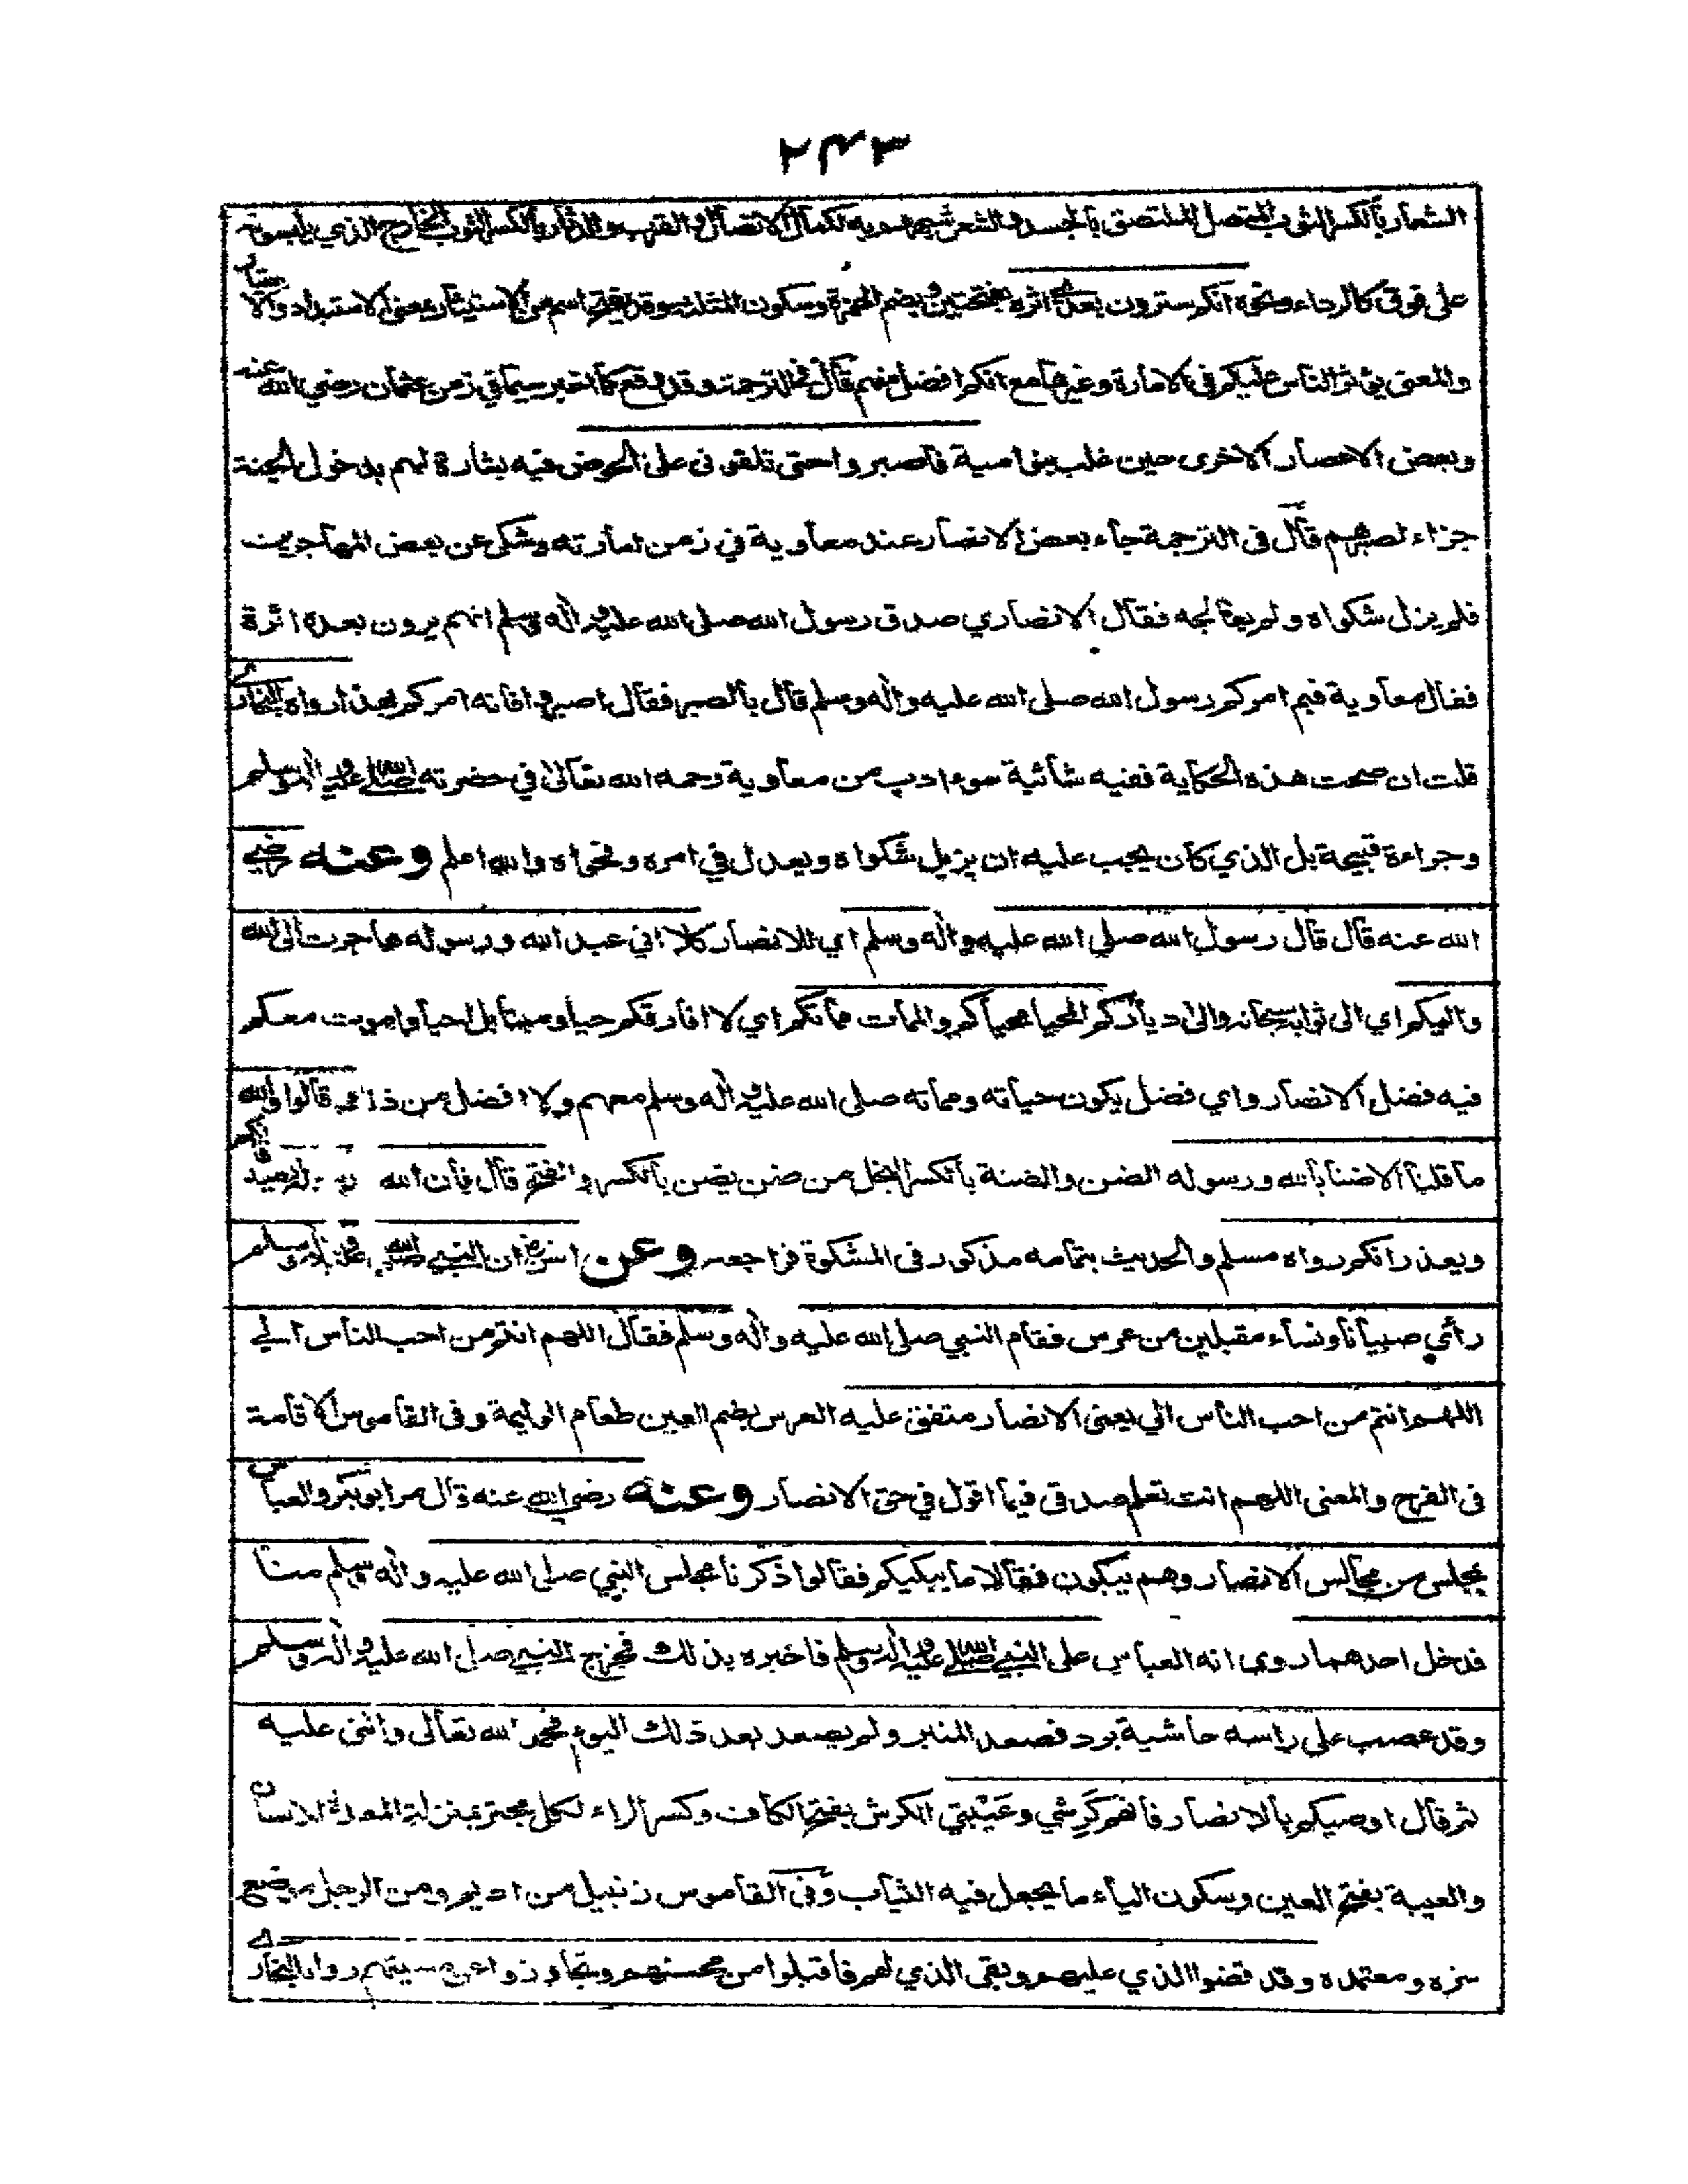 ٢٤٣
الشعار بالكسر الثوب المتصل الملتصق بالجسد والشعر شبههم به لكمال الاتصال والقرب والدثار بالكسر الثوب الخارج الذي يلبسونه
على فوق كالرداء ونحوه انكم سترون بعدي اثرة بفتحتين وبضم الهمزة وسكون المثلثة اسم من الاستيثار بمعنى الاستبداد والاختيار
والمعنى يؤثر الناس عليكم في الامارة وغيرها مع انكم افضل منهم قال في الترجمة وقد وقع كما اخبر سيما في زمن عثمان رضي الله عنه
وبعض الاعصار الاخرى حين غلب بنوامية فاصبروا حتى تلقوني على الحوض فيه بشارة لهم بدخول الجنة
جزاء لصبرهم قال في الترجمة جاء بعض الانصار عند معاوية في زمن امارته وشكى عن بعض المهاجرين
فلم يزل شكواه ولم يعالجه فقال الانصاري صدق رسول الله صلى الله عليه واله وسلم انهم يرون بعده اثرة
فقال معاوية فبم امركم رسول الله صلى الله عليه واله وسلم قال بالصبر فقال اصبروا فانه امركم بهذا رواه البخاري
قلت ان صحت هذه الحكاية ففيه شائبة سوء ادب من معاوية رحمه الله تعالى في حضرته صلى الله عليه واله وسلم
وجراءة قبيحة بل الذي كان يجب عليه ان يزيل شكواه ويعدل في امره ونحواه والله اعلم وعنه رضي
الله عنه قال قال رسول الله صلى الله عليه واله وسلم اي للانصار كلا اني عبد الله ورسوله هاجرت الى الله
واليكم اي الى ثوابه سبحانه والى دياركم المحيا محياكم والممات مماتكم اي لا افارقكم حيا وميتا بل احيا واموت معكم
فيه فضل الانصار واي فضل يكون حياته ومماته صلى الله عليه واله وسلم معهم ولا افضل من ذلك قالوا والله
ما قلنا الا ضنا بالله ورسوله الضن والضنة بالكسر البخل من ضن يضن بالكسر والفتح قال فان الله ورسوله يصدقانكم
ويعذرانكم رواه مسلم والحديث بتمامه مذكور في المشكوة فراجعه وعن انس رض ان النبي صلى الله عليه واله وسلم
رأي صبيانا ونساء مقبلين من عرس فقام النبي صلى الله عليه واله وسلم فقال اللهم انتم من احب الناس الي
اللهم انتم من احب الناس الي يعني الانصار متفق عليه العرس بضم العين طعام الوليمة وفي القاموس الاقامة
في الفرح والمعنى اللهم انت تعلم صدقي فيما اقول في حق الانصار وعنه رضي الله عنه قال مر ابو بكر والعباس
بمجلس من مجالس الانصار وهم يبكون فقالا ما يبكيكم فقالوا ذكرنا مجلس النبي صلى الله عليه واله وسلم منا
فدخل احدهما روي انه العباس على النبي صلى الله عليه واله وسلم فاخبره بذلك فخرج النبي صلى الله عليه واله وسلم
وقد عصب على راسه حاشية برد فصعد المنبر ولم يصعد بعد ذلك اليوم فحمد الله تعالى واثنى عليه
ثم قال اوصيكم بالانصار فانهم كَرِشي وعَيْبتي الكرش بفتح الكاف وكسر الراء لكل مجتر بمنزلة المعدة للانسان
والعيبة بفتح العين وسكون الياء ما يجعل فيه الثياب وفي القاموس زنبيل من اديم ومن الرجل موضع
سره ومعتمده وقد قضوا الذي عليهم وبقي الذي لهم فاقبلوا من محسنهم وتجاوزوا عن مسيئهم رواه البخاري